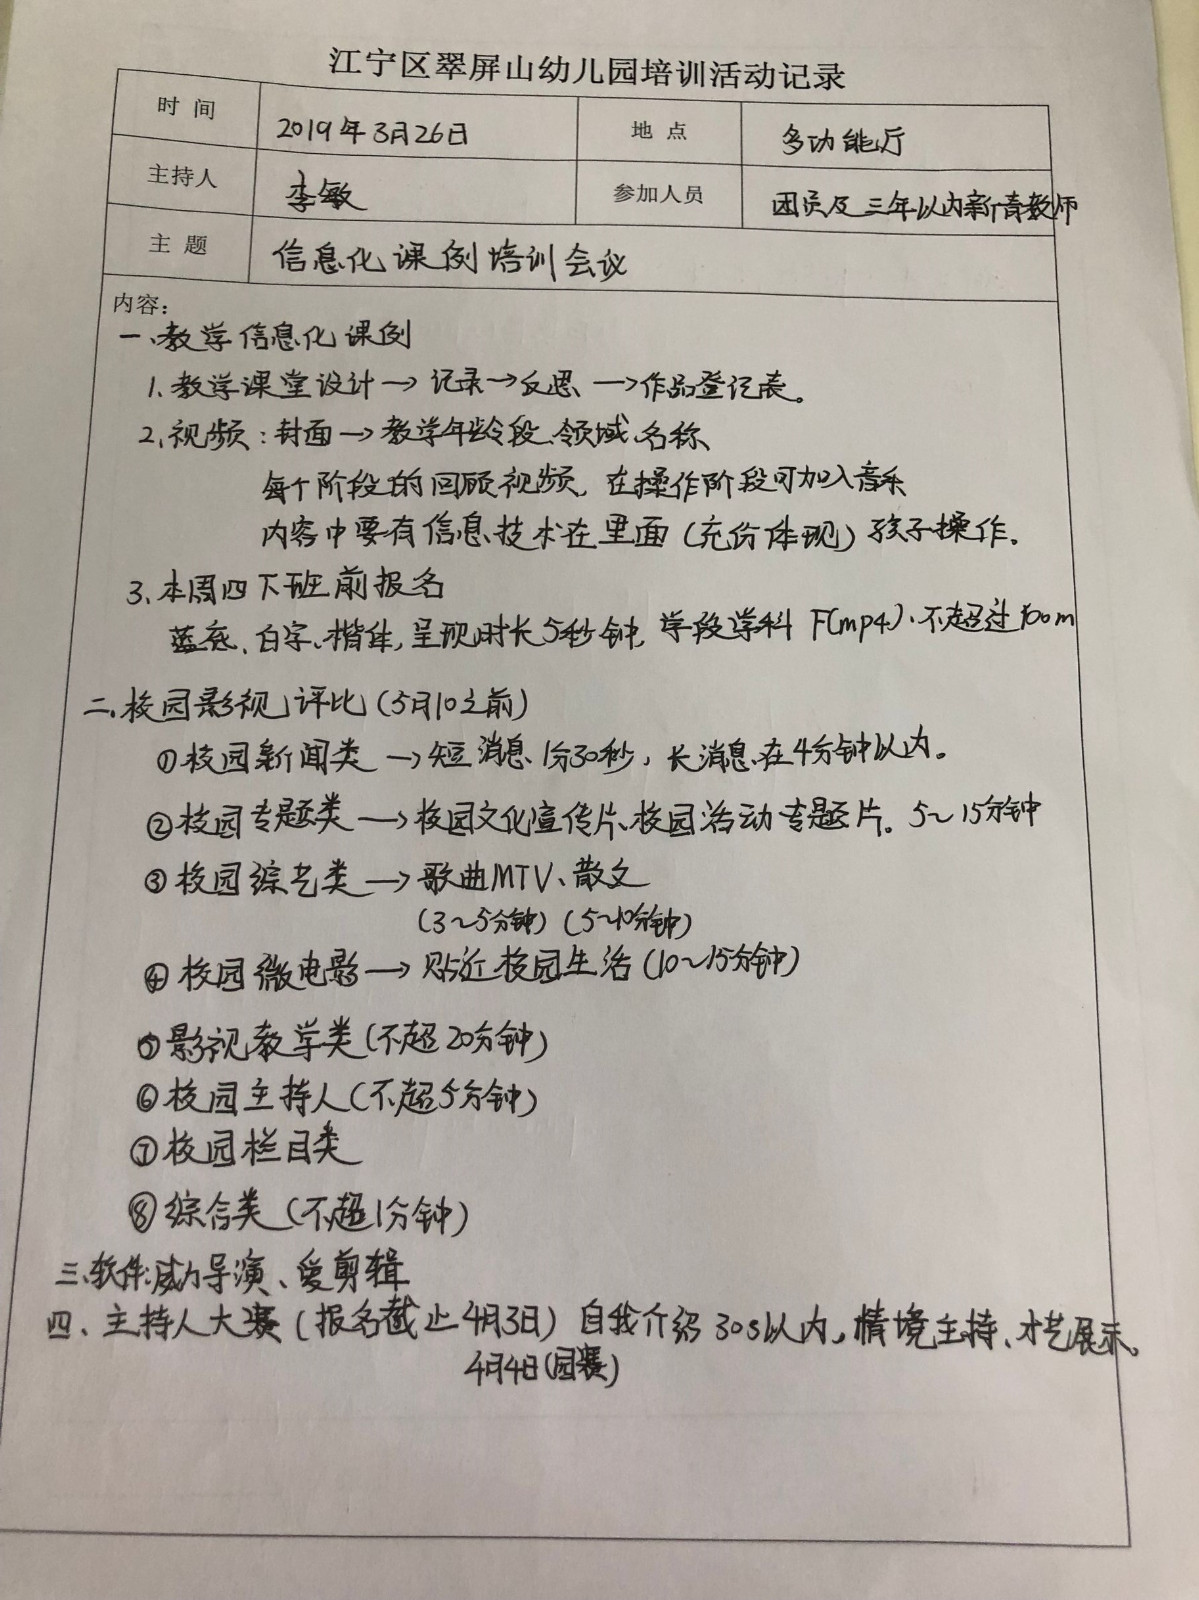 江宁区翠屏山幼儿园培训活动记录
时间 2019年3月26日 地点 多功能厅
主持人 李敏 参加人员 团员及三年以内新青教师
主题 信息化课例培训会议
内容:
一、教学信息化课例
1. 教学课堂设计→记录→反思→作品登记表。
2. 视频:封面→教学年龄段、领域、名称、
每个阶段的回顾视频,在操作阶段可加入音乐
内容中要有信息技术在里面(充份体现)孩子操作。
3. 本周四下班前报名
蓝底、白字、楷体,呈现时长5秒钟,学段学科 F(mp4)、不超过100m
二、校园影视评比(5月10之前)
①校园新闻类→短消息1分30秒,长消息在4分钟以内。
②校园专题类→校园文化宣传片、校园活动专题片。5~15分钟
③校园综艺类→歌曲MTV、散文
(3~5分钟)(5~10分钟)
④校园微电影→贴近校园生活(10~15分钟)
⑤影视教学类(不超20分钟)
⑥校园主持人(不超5分钟)
⑦校园栏目类
⑧综合类(不超1分钟)
三、软件:威力导演、爱剪辑
四、主持人大赛(报名截止4月3日)自我介绍30s以内,情境主持、才艺展示。
4月4日(园赛)